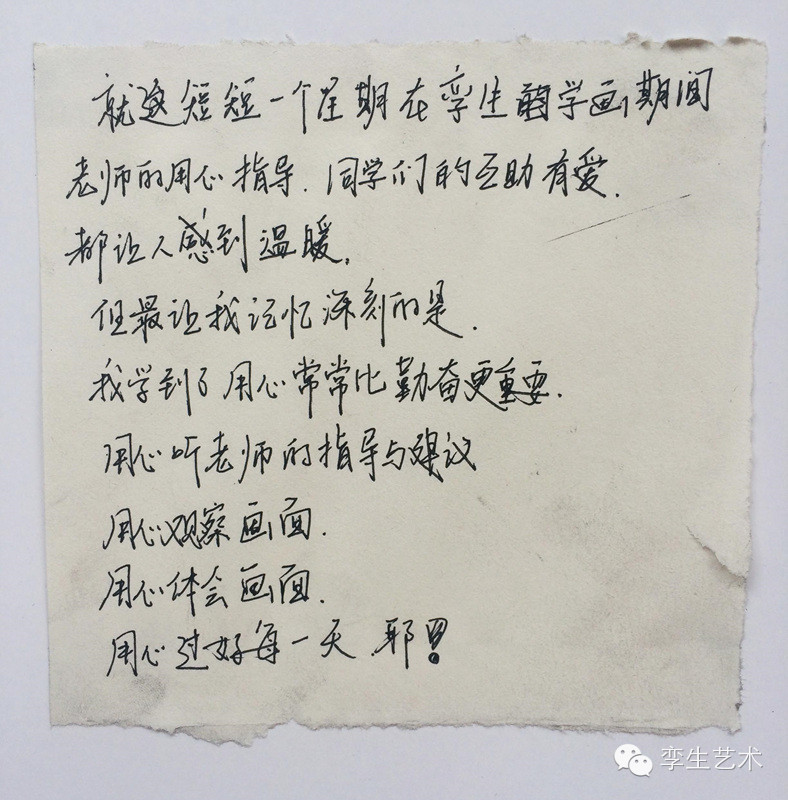 就这短短一个星期在孪生的学画期间
老师的用心指导.同学们的互助有爱.
都让人感到温暖,
但最让我记忆深刻的是.
我学到了用心常常比勤奋更重要.
用心听老师的指导与建议
用心观察画面.
用心体会画面.
用心过好每一天.耶!
孪生艺术